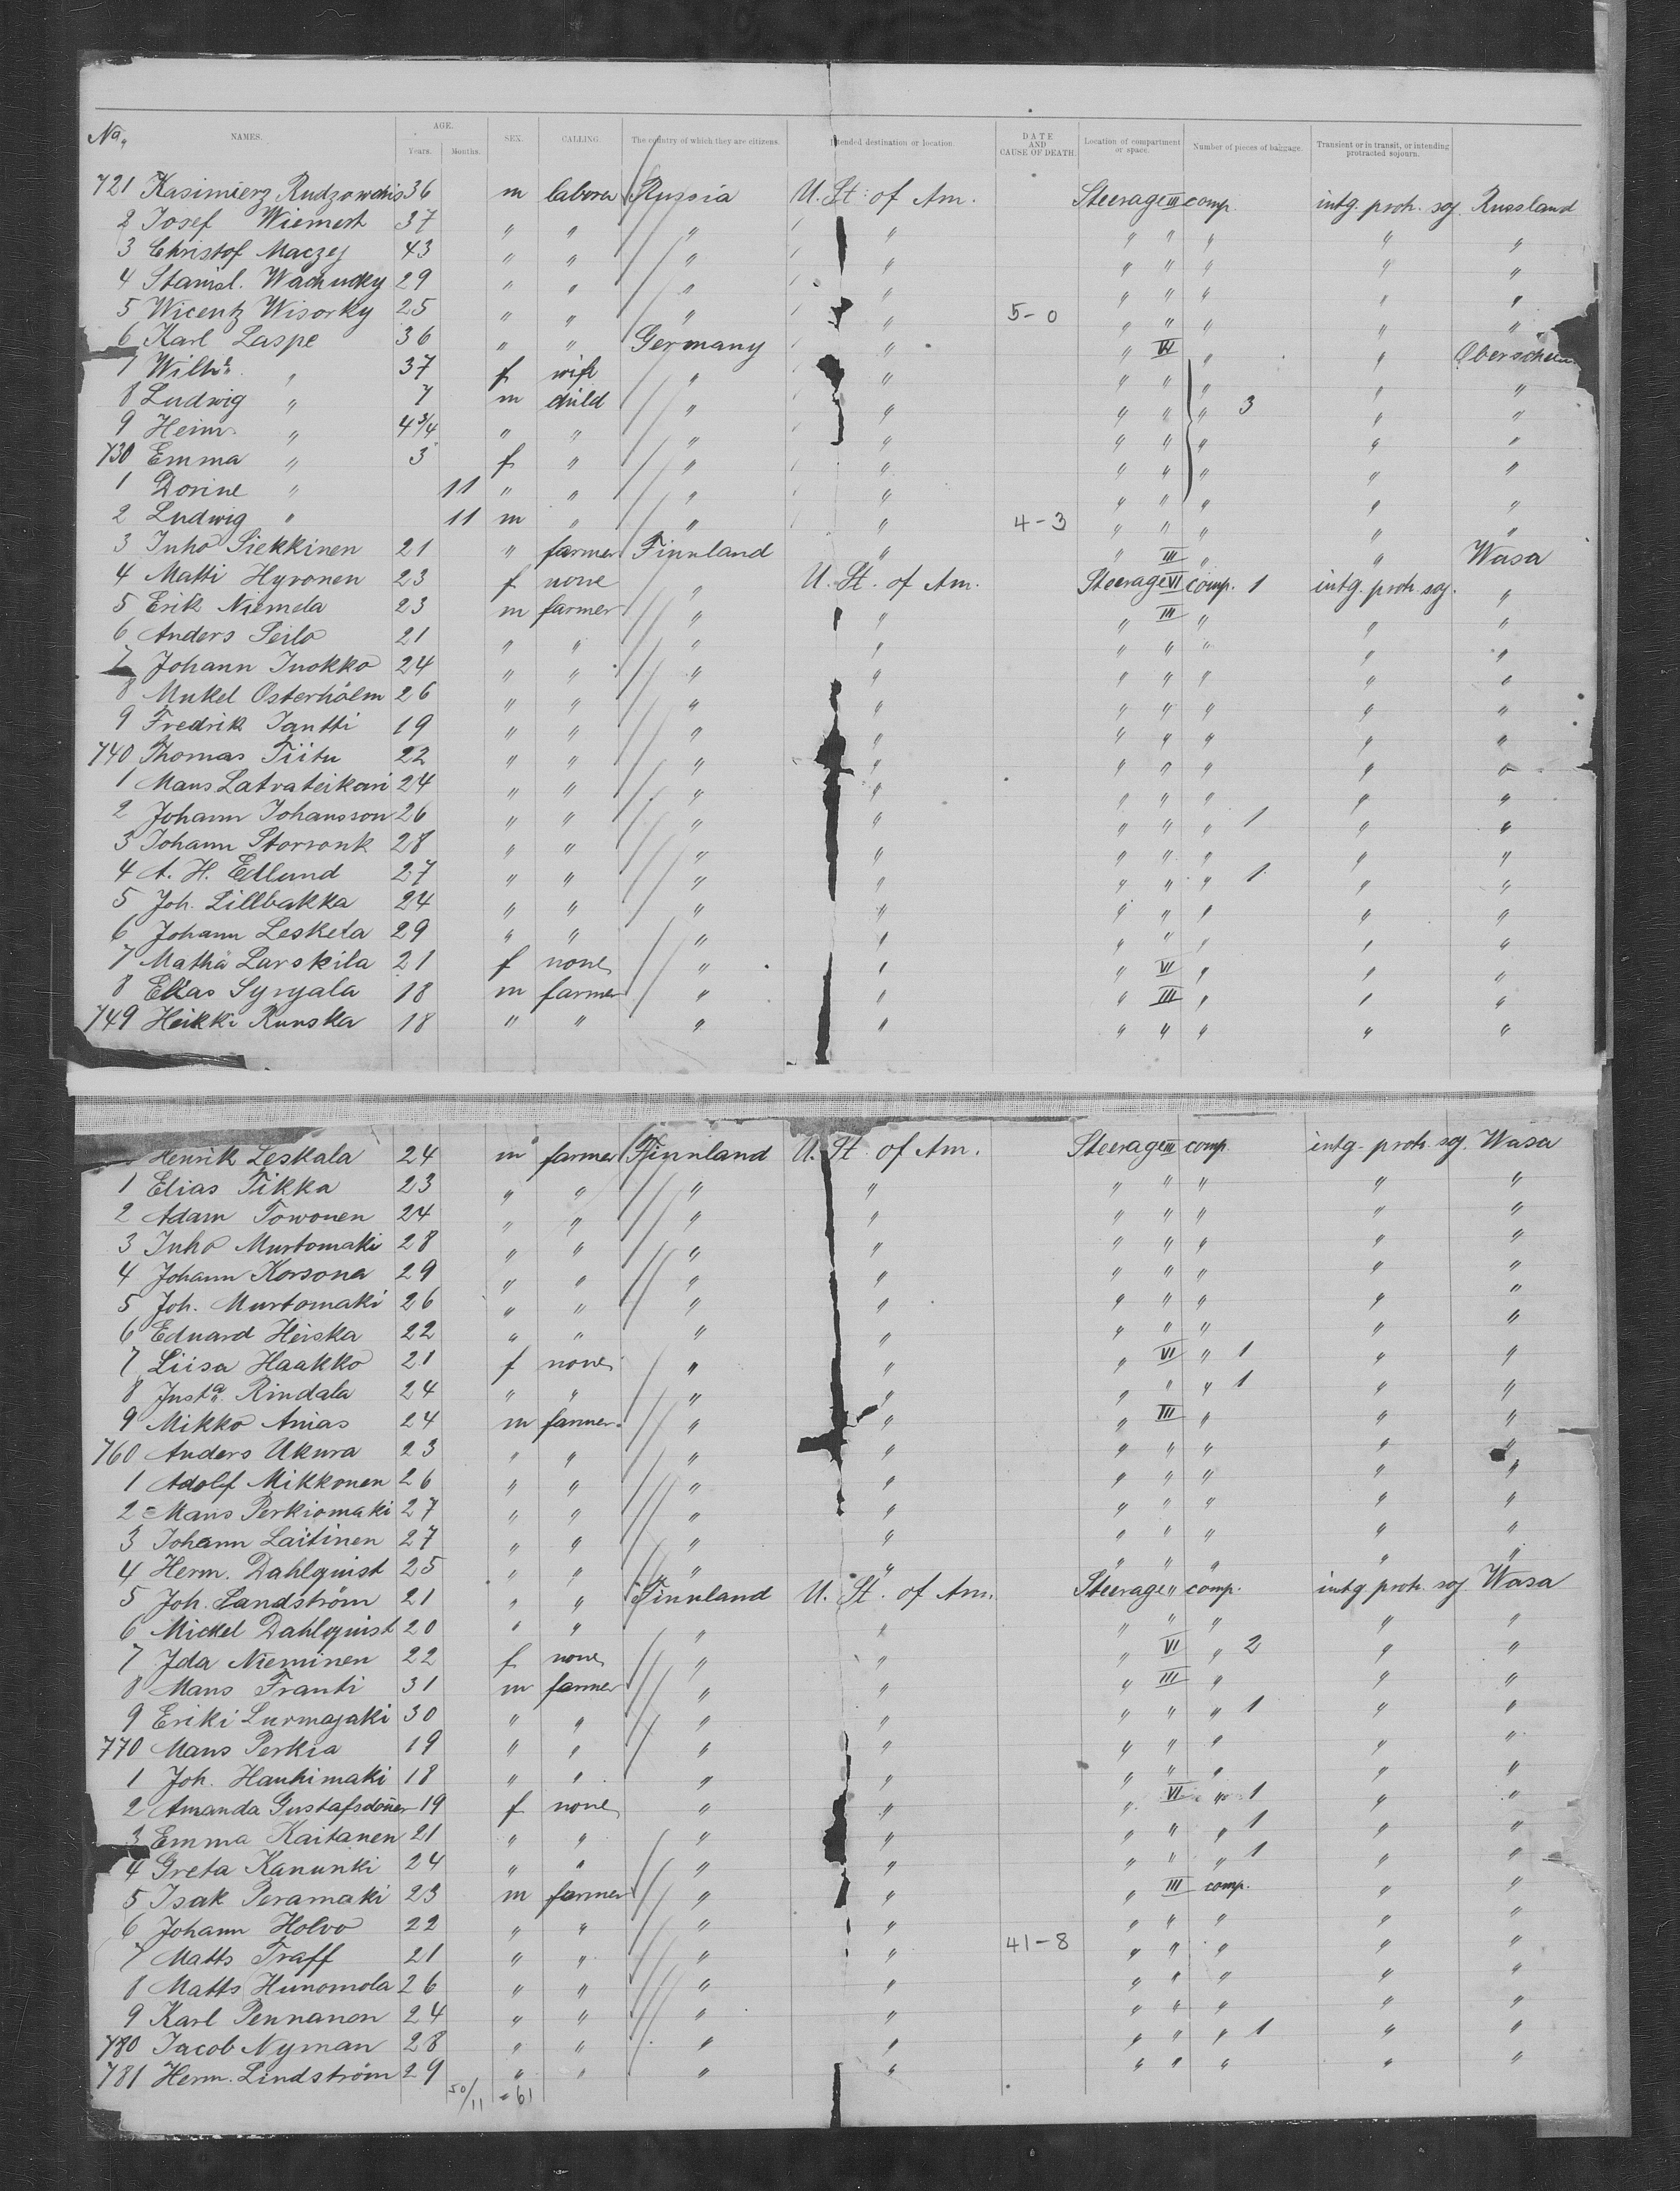 No. NAMES. AGE. Years. Months. SEX. CALLING. The country of which they are citizens. Intended destination or location. DATE AND CAUSE OF DEATH. Location of compartment or space. Number of pieces of baggage. Transient or in transit, or intending protracted sojourn.
721 Kasimierz Rudzowchis 36 m labora Russia U. St. of Am. Steerage III comp. intg. proh. soj. Russland
2 Josef Wiemert 37 " " " " " " " " "
3 Christof Maczej 43 " " " " " " " " "
4 Stanisl. Wachucky 29 " " " " " " " " "
5 Wicentz Wisorky 25 " " " " 5-0 " " " " "
6 Karl Laspe 36 " " Germany " " VI " "
7 Wilhe. " 37 f wife " " " " " " "
8 Ludwig " 7 m child " " " " " 3 " "
9 Heinr. " 4 3/4 " " " " " " " " "
730 Emma " 3 f " " " " " " " "
1 Dorine " 11 " " " " " " " " "
2 Ludwig " 11 m " " " 4-3 " " " " "
3 Juho Siekkinen 21 " farmer Finnland " " III " " Wasa
4 Matti Hyvonen 23 f none " U. St. of Am. Steerage VI comp. 1 intg. proh. soj. "
5 Erik Niemela 23 m farmer " " " III " " "
6 Anders Seilo 21 " " " " " " " " "
7 Johann Inokko 24 " " " " " " " " "
8 Mukel Osterholm 26 " " " " " " " " "
9 Fredrik Jantti 19 " " " " " " " " "
740 Thomas Tiitu 22 " " " " " " " " "
1 Mans Latvateikari 24 " " " " " " " " "
2 Johann Johansson 26 " " " " " " " 1 " "
3 Johann Storronk 28 " " " " " " " " "
4 A. H. Edlund 27 " " " " " " " 1 " "
5 Joh. Lillbakka 24 " " " " " " " " "
6 Johann Lesketa 29 " " " " " " " " "
7 Matha Larskila 21 f none " " " VI " " "
8 Elias Syryala 18 m farmer " " " III " " "
749 Heikki Ranska 18 " " " " " " " " "
Henrik Leskala 24 m farmer Finnland U. St. of Am. Steerage III comp. intg. proh. soj. Wasa
1 Elias Tikka 23 " " " " " " " " "
2 Adam Towonen 24 " " " " " " " " "
3 Juho Murtomaki 28 " " " " " " " " "
4 Johann Korsona 29 " " " " " " " " "
5 Joh. Murtomaki 26 " " " " " " " " "
6 Eduard Heiska 22 " " " " " " " " "
7 Liisa Haakko 21 f none " " " VI " 1 " "
8 Justa. Rindala 24 " " " " " " " 1 " "
9 Mikko Anias 24 m farmer " " " III " " "
760 Anders Ukura 23 " " " " " " " " "
1 Adolf Mikkonen 26 " " " " " " " " "
2 Mans Perkiomaki 27 " " " " " " " " "
3 Johann Laitinen 27 " " " " " " " " "
4 Herm. Dahlquist 25 " " " " " " " " "
5 Joh. Landström 21 " " Finnland U. St. of Am. Steerage " comp. intg proh. soj. Wasa
6 Mickel Dahlquist 20 " " " " " " " " "
7 Ida Nieminen 22 f none " " " VI " 2 " "
8 Mans Franti 31 m farmer " " " III " " "
9 Eriki Lurmajaki 30 " " " " " " " 1 " "
770 Mans Perkia 19 " " " " " " " " "
1 Joh. Hauhimaki 18 " " " " " " " " "
2 Amanda Gustafsdotter 19 f none " " " VI " 1 " "
3 Emma Kaitanen 21 " " " " " " " 1 " "
4 Greta Kanunki 24 " " " " " " " 1 " "
5 Isak Peramaki 23 m farmer " " " III comp. " "
6 Johann Holvo 22 " " " " " " " " "
7 Matts Traff 21 " " " " 41-8 " " " " "
8 Matts Hunomola 26 " " " " " " " " "
9 Karl Pennanen 24 " " " " " " " " "
780 Jacob Nyman 28 " " " " " " " 1 " "
781 Herm. Lindström 29 " " " " " " " " "
50/11 = 61